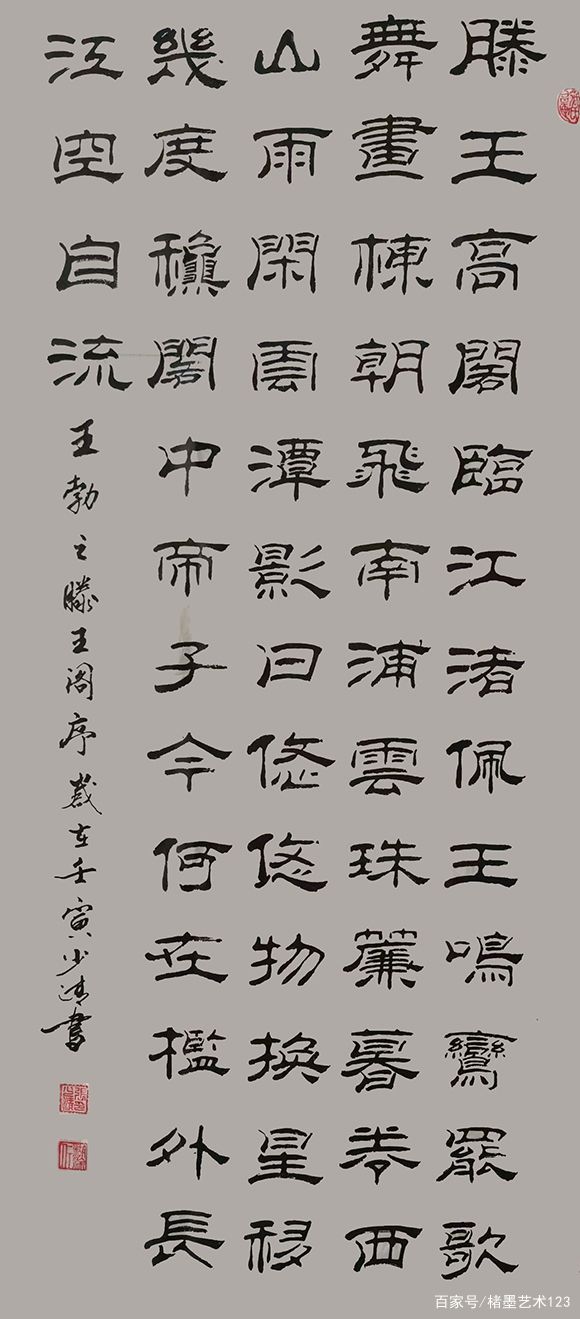 滕王高閣臨江渚佩王鳴鸞罷歌
舞畫棟朝飛南浦雲珠簾暮卷西
山雨閑雲潭影日悠悠物換星移
幾度穐閣中帝子今何在檻外長
江空自流
王勃之滕王阁序歲在壬寅少清書
百家号/楮墨艺术123